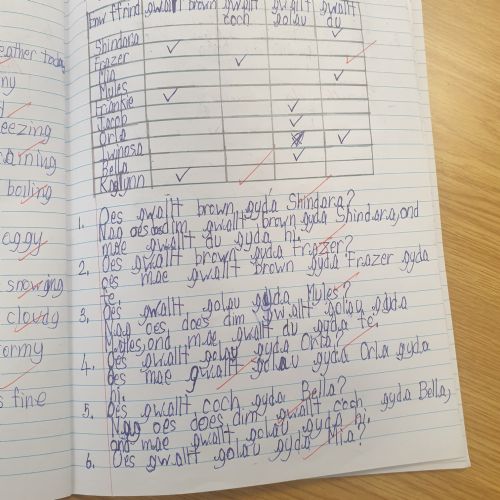 eather today
ny
eezing
arning
boiling
eggy
snowing
cloudy
ormy
s fine
enw ffrind gwallt brown gwallt coch gwallt golau gwallt du
Shindara
Frazer
Mia
Myles
Frankie
Jacob
Orla
Bella
Kaglynn
1. Oes gwallt brown gyda Shindara?
Nag oes does dim gwallt brown gyda Shindara, ond
mae gwallt du gyda hi.
2. Oes gwallt brown gyda Frazer?
oes mae gwallt brown gyda Frazer gyda
fe.
3. Oes gwallt golau gyda Myles?
Nag oes, does dim gwallt golau gyda
Myles, ond mae gwallt du gyda fe.
4. Oes gwallt golau gyda Orla?
oes mae gwallt golau gyda Orla gyda
hi.
5. Oes gwallt coch gyda Bella?
Nag oes does dim gwallt coch gyda Bella,
ond mae gwallt golau gyda hi.
6. Oes gwallt golau gyda Mia?